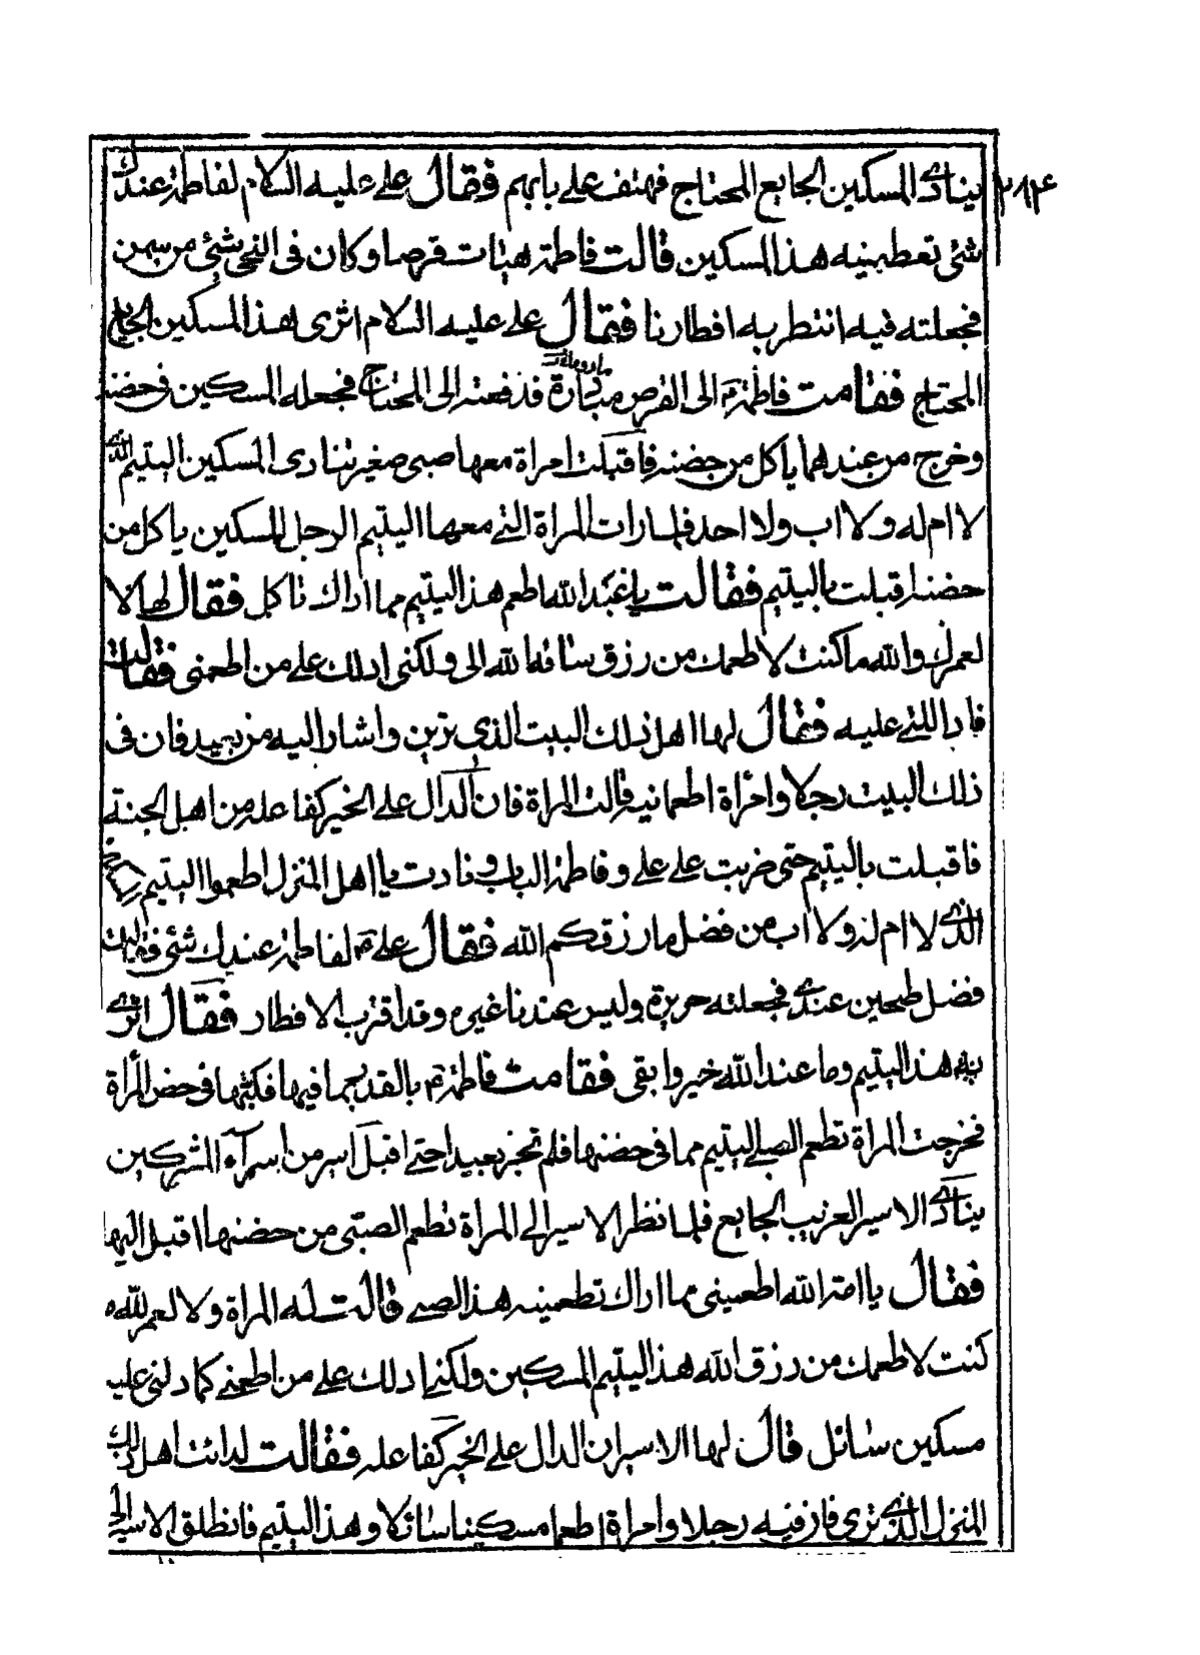 ٢٨٤
ينادى المسكين الجايع المحتاج فهتف على بابهم فقال على عليه السلام لفاطمة عندك
شئ تعطينيه هذا المسكين قالت فاطمة هيئات قرصا وكان فى النحى شئ من سمن
فجعلته فيه انتظر به افطارنا فقال على عليه السلام اثرى هذا المسكين الجايع
المحتاج فقامت فاطمة الى القرص مبادرة فدفعته الى المحتاج فجعله المسكين فى حضنه
وخرج من عندهما ياكل من حضنه فاقبلت امراة معها صبى صغير تنادى المسكين اليتيم الذى
لا ام له ولا اب ولا احد فلما رات المراة التى معها اليتيم الرجل المسكين ياكل من
حضنه اقبلت باليتيم فقالت يا عبد الله اطعم هذا اليتيم مما اراك تاكل فقال لها لا
لعمرك والله ما كنت لاطعمك من رزق ساقه الله الى ولكنى ادلك على من اطعمنى فقالت
فادللنى عليه فقال لها اهل ذلك البيت الذى ترين واشار اليه من بعيد فان فى
ذلك البيت رجلا وامراة اطعمانيه قالت المراة فان الدال على الخير كفاعله من اهل الجنة
فاقبلت باليتيم حتى ضربت على على وفاطمة الباب ونادت يا اهل المنزل اطعموا اليتيم
الذى لا ام له ولا اب من فضل ما رزقكم الله فقال على لفاطمة عندك شئ فقالت
فضل طحين عندى فجعلته حريرة وليس عندنا غيره وقد اقترب الافطار فقال اثرى
به هذا اليتيم وما عند الله خير وابقى فقامت فاطمة بالقدر بما فيها فكبتها فى حضن المراة
فخرجت المراة تطعم الصبى اليتيم مما فى حضنها فلم تجز بعيدا حتى اقبل اسير من اسرآء المشركين
ينادى الاسير الغريب الجايع فلما نظر الاسير الى المراة تطعم الصبى من حضنها اقبل اليها
فقال يا امة الله اطعمينى مما اراك تطعمينه هذا الصبى قالت له المراة ولا لعمر الله ما
كنت لاطعمك من رزق الله هذا اليتيم المسكين ولكنى ادلك على من اطعمنى كما دلنى عليه
مسكين سائل قال لها الاسير ان الدال على الخير كفاعله فقالت له ائت اهل ذلك
المنزل الذى ترى فان فيه رجلا وامراة اطعما مسكينا سائلا وهذا اليتيم فانطلق الاسير الى